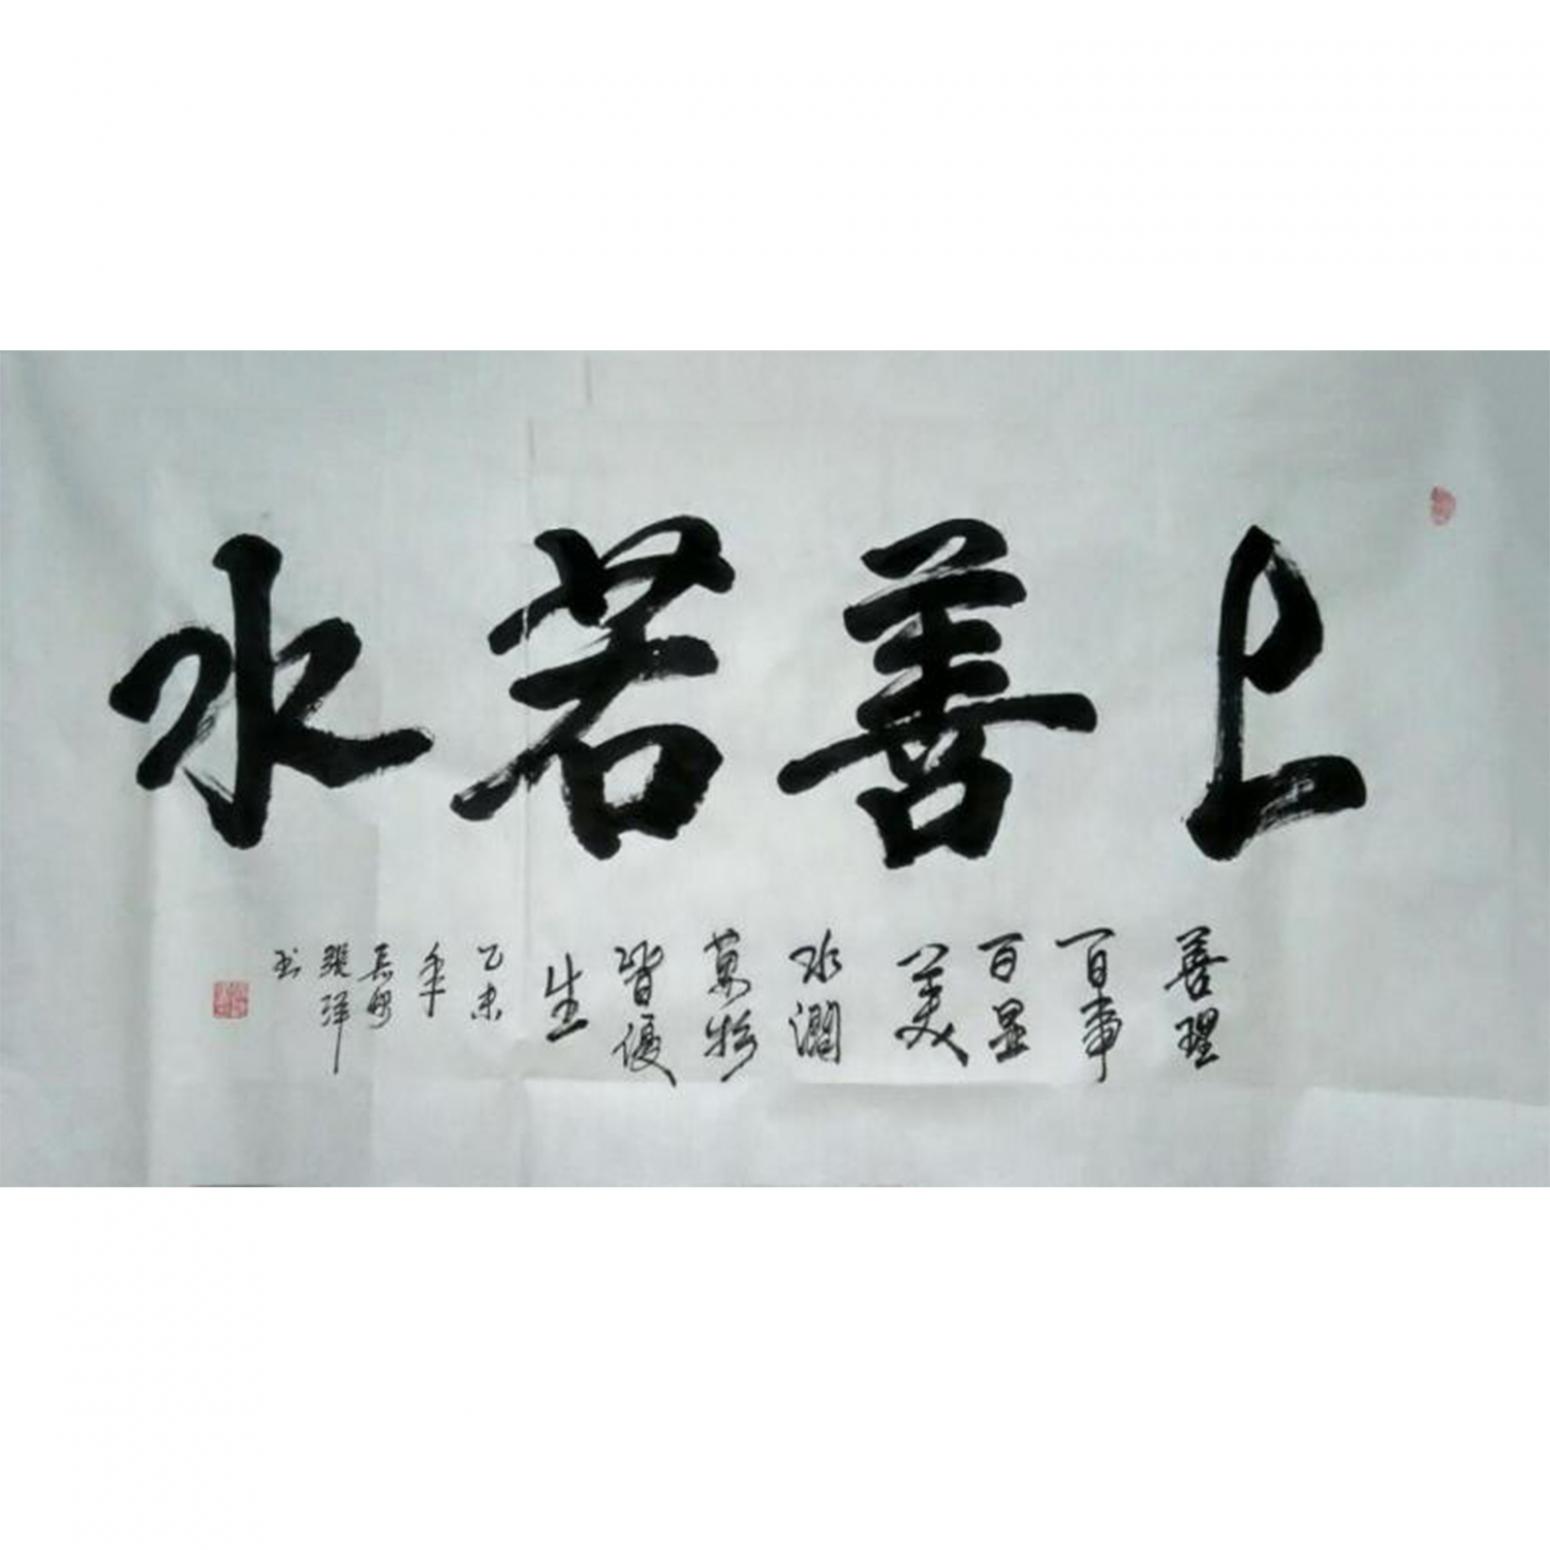 上善若水
善理
百事
百显
美
水潤
萬物
皆優
生
乙未
年
張澤
书